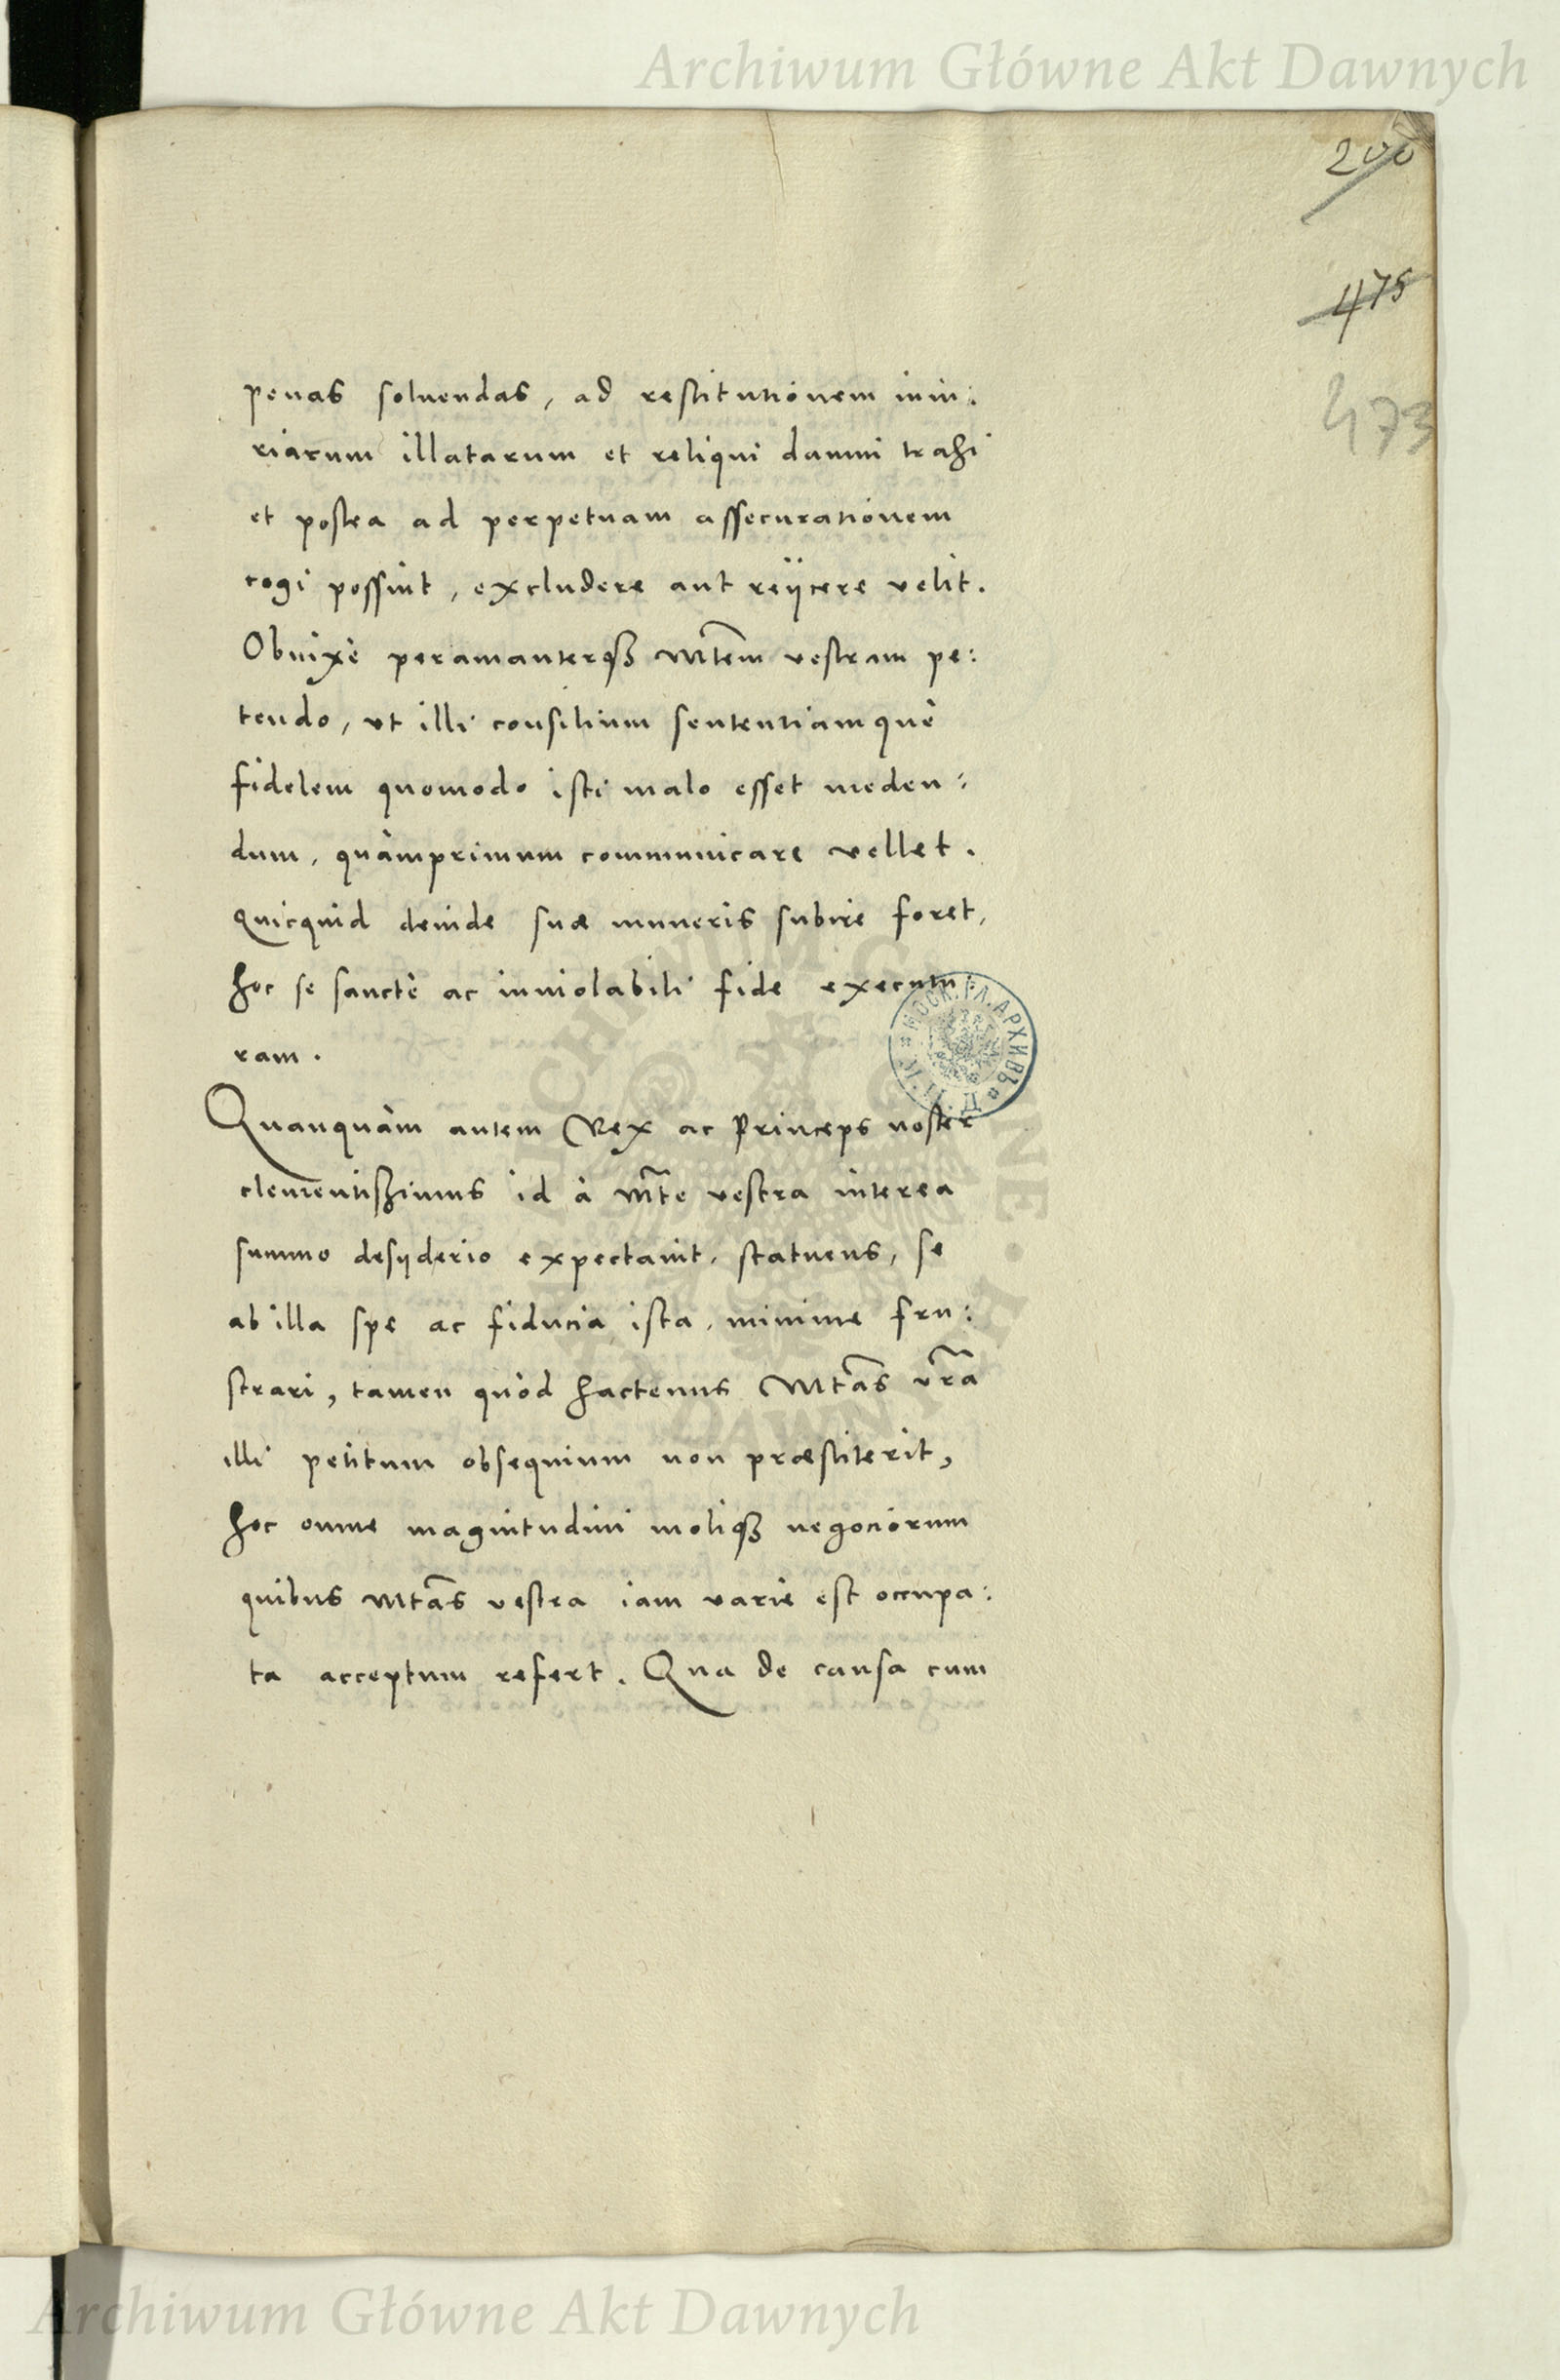 Archiwum Główne Akt Dawnych
200
475
473
penas soluendas, ad restitutionem iniu:
riarum illatarum et reliqui damni trahi
et postea ad perpetuam assecurationem
cogi possint, excludere aut reijcere velit.
Obnixè peramanterq́ꝫ Mtem vestram pe:
tendo, vt illi consilium sententiamquè
fidelem quomodo isti malo esset meden:
dum, quàmprimum communicare vellet.
Quicquid deinde suæ muneris subire foret,
hoc se sanctè ac inuiolabili fide executu:
ram.
Quanquàm autem Rex ac Princeps noster
clementißimus id à Mte vestra interea
summo desyderio expectauit, statuens, se
ab illa spe ac fiducia ista, minime fru:
strari, tamen quòd hactenus Mtas vra
illi petitum obsequium non præstiterit,
hoc omne magnitudini moliq́ꝫ negociorum
quibus Mtas vestra iam varie est occupa:
ta acceptum refert. Qua de causa cum
Archiwum Główne Akt Dawnych